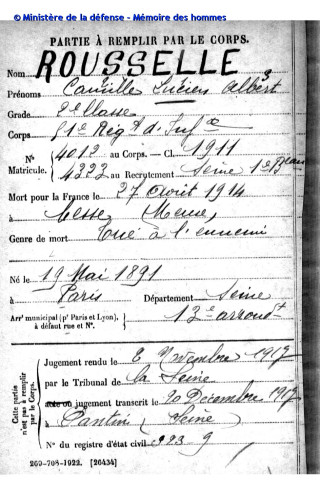 © Ministère de la défense - Mémoire des hommes
PARTIE À REMPLIR PAR LE CORPS.
Nom ROUSSELLE
Prénoms Camille Lucien Albert
Grade 2e Classe
Corps 51e Régt d'Infie
N° Matricule. { 4012 au Corps. — Cl. 1911
4222 au Recrutement Seine 1er Bau
Mort pour la France le 27 Août 1914
à Cesse, Meuse,
Genre de mort Tué à l'ennemi
Né le 19 Mai 1891
à Paris Département Seine
Arrt municipal (pr Paris et Lyon), à défaut rue et N°. } 12e arrondt
Cette partie n'est pas à remplir par le Corps.
Jugement rendu le 2 Novembre 1917
par le Tribunal de la Seine
jugement transcrit le 20 Décembre 1917
à Pantin (Seine)
N° du registre d'état civil 923
260-708-1922. [26434]